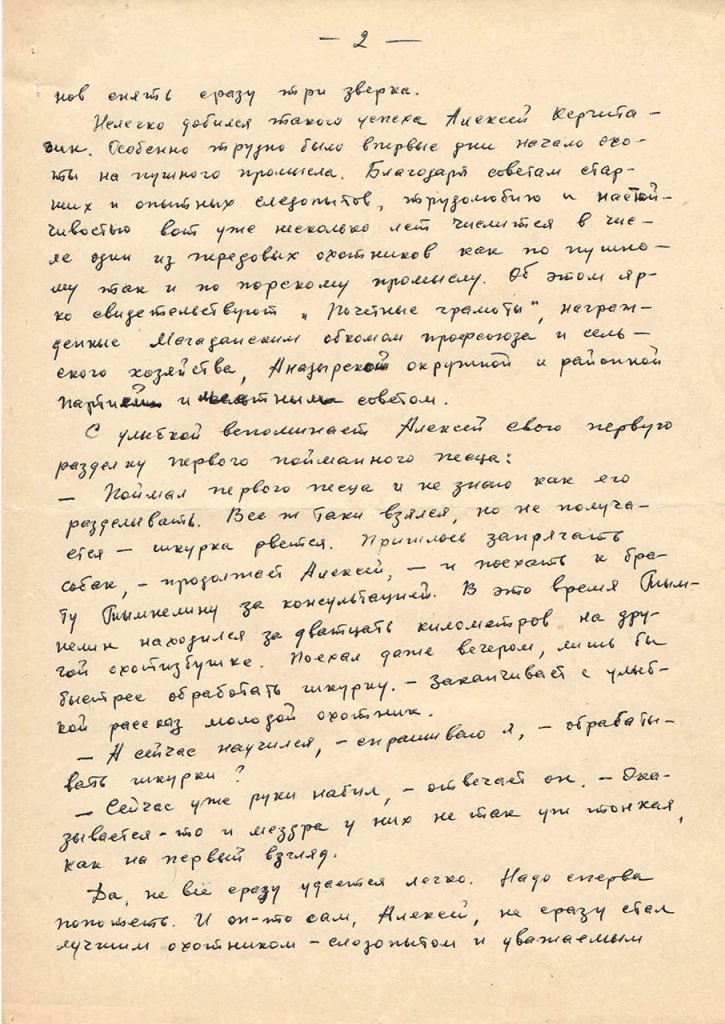 — 2 —
нов снять сразу три зверка.
Нелегко добился такого успеха Алексей Кергита-
гин. Особенно трудно было впервые дни начало охо-
ты на пушного промысла. Благодаря советам стар-
ших и опытных следопытов, трудолюбию и настой-
чивостью вот уже несколько лет числится в чис-
ле один из передовых охотников как по пушно-
му так и по морскому промыслу. Об этом яр-
ко свидетельствуют „Почетные грамоты", награж-
денные Магаданским обкомом профсоюза и сель-
ского хозяйства, Анадырской окружной и районной
партией и местным советом.
С улыбкой вспоминает Алексей свою первую
разделку первого пойманного песца:
— Поймал первого песца и не знаю как его
разделывать. Все ж таки взялся, но не получа-
ется — шкурка рвется. Пришлось запрячать
собак, — продолжает Алексей, — и поехать к бра-
ту Тымнелину за консультацией. В это время Тым-
нелин находился за дватцать километров на дру-
гой охотизбушке. Поехал даже вечером, лишь бы
быстрее обработать шкурку. — Заканчивает с улыб-
кой рассказ молодой охотник.
— А сейчас научился, — спрашиваю я, — обрабаты-
вать шкурки?
— Сейчас уже руки набил, — отвечает он. — Ока-
зывается-то и мездра у них не так уж тонкая,
как на первый взгляд.
Да, не всё сразу удается легко. Надо сперва
попотеть. И он-то сам, Алексей, не сразу стал
лучшим охотником-следопытом и уважаемым